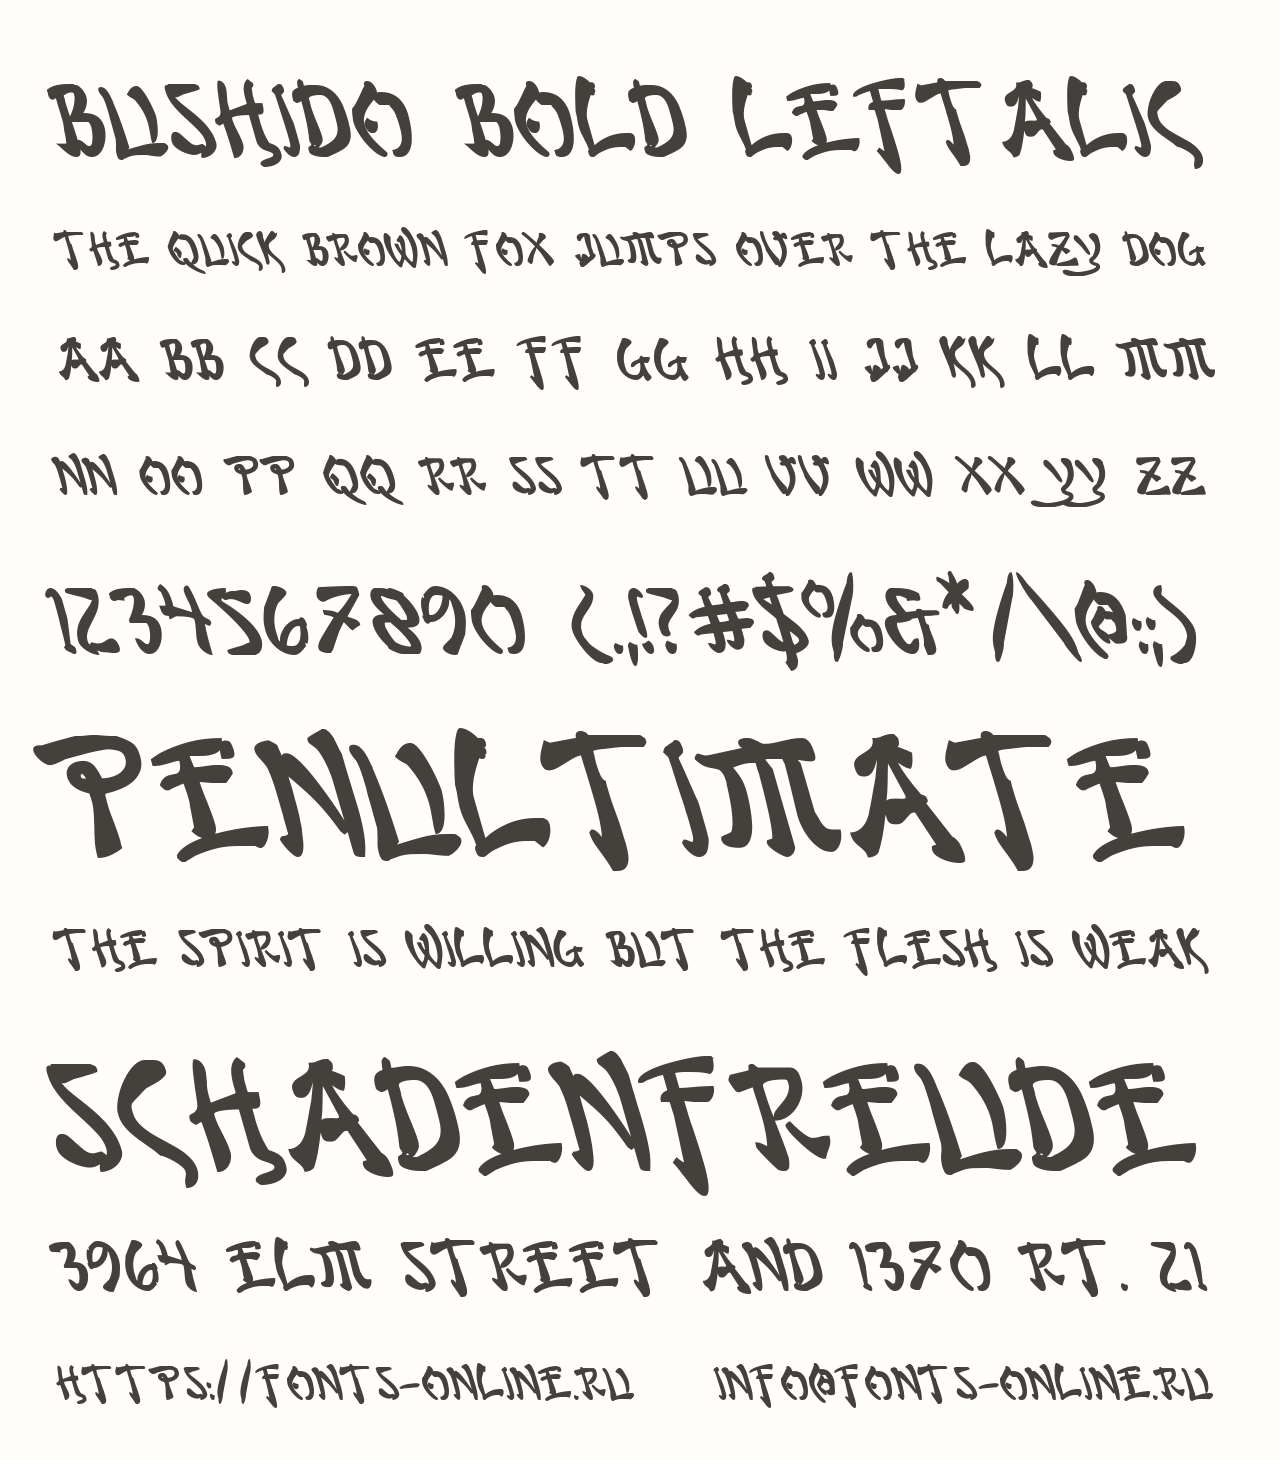 BUSHIDO BOLD LEFTALIC
THE QUICK BROWN FOX JUMPS OVER THE LAZY DOG
AA BB CC DD EE FF GG HH II JJ KK LL MM
NN OO PP QQ RR SS TT UU VV WW XX YY ZZ
1234567890 (.,!?#$%&*/\@:;)
PENULTIMATE
THE SPIRIT IS WILLING BUT THE FLESH IS WEAK
SCHADENFREUDE
3964 ELM STREET AND 1370 RT. 21
HTTPS://FONTS-ONLINE.RU INFO@FONTS-ONLINE.RU